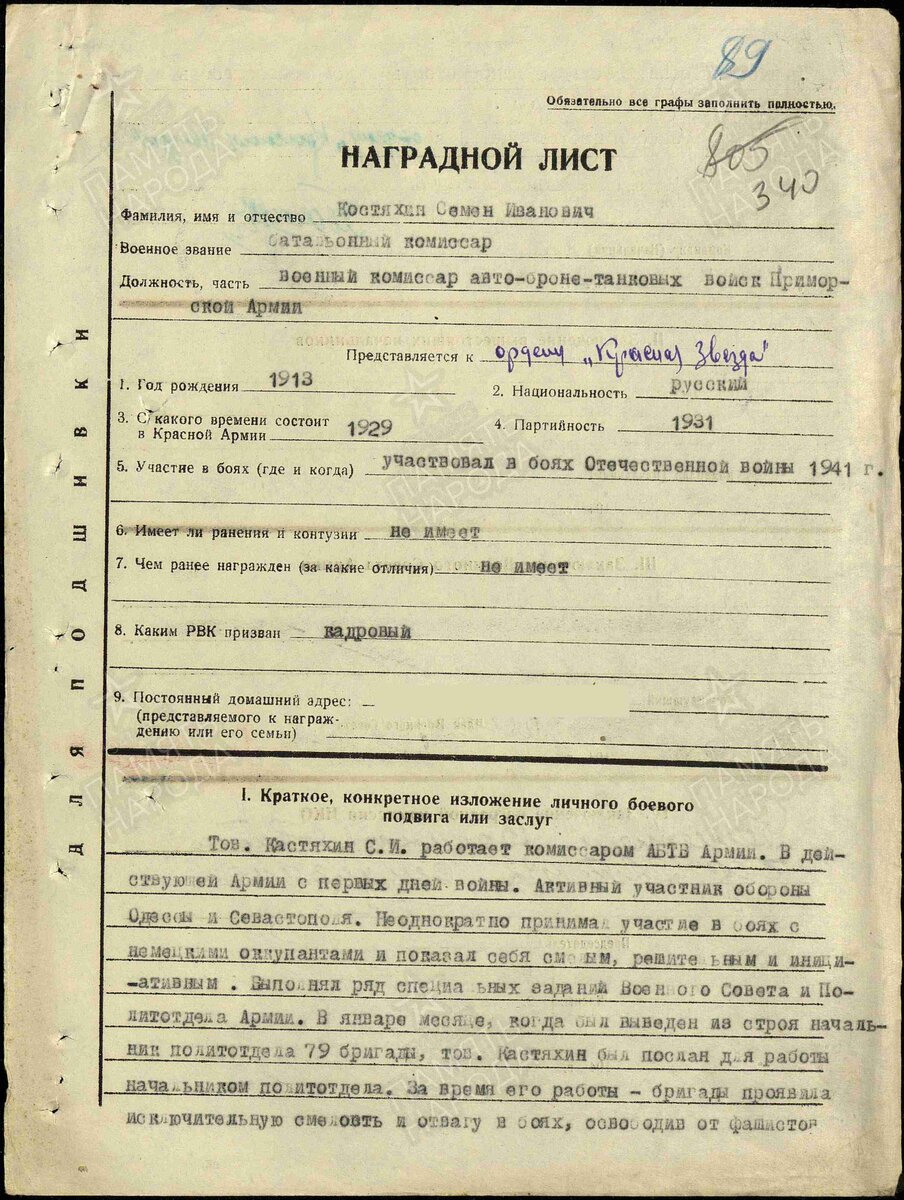 89
Обязательно все графы заполнить полностью.
805
340
НАГРАДНОЙ ЛИСТ
Фамилия, имя и отчество Костяхин Семен Иванович
Военное звание батальонный комиссар
Должность, часть военный комиссар авто-броне-танковых войск Примор-
ской Армии
Представляется к ордену „Красная Звезда"
1. Год рождения 1913 2. Национальность русский
3. С какого времени состоит
в Красной Армии 1929 4. Партийность 1931
5. Участие в боях (где и когда) участвовал в боях Отечественной войны 1941 г.
6. Имеет ли ранения и контузии не имеет
7. Чем ранее награжден (за какие отличия) не имеет
8. Каким РВК призван кадровый
9. Постоянный домашний адрес:
(представляемого к награж-
дению или его семьи)
ДЛЯ ПОДШИВКИ
I. Краткое, конкретное изложение личного боевого
подвига или заслуг
Тов. Кастяхин С.И. работает комиссаром АБТВ Армии. В дей-
ствующей Армии с первых дней войны. Активный участник обороны
Одессы и Севастополя. Неоднократно принимал участие в боях с
немецкими оккупантами и показал себя смелым, решительным и иници-
-ативным . Выполнял ряд специальных заданий Военного Совета и По-
литотдела Армии. В январе месяце, когда был выведен из строя началь-
ник политотдела 79 бригады, тов. Кастяхин был послан для работы
начальником политотдела. За время его работы – бригады проявила
исключительную смелость и отвагу в боях, освободив от фашистов
ПАМЯТЬ НАРОДА